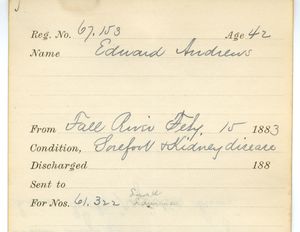 Reg. No. 67.153 Age 42
Name Edward Andrews
From Fall River Feby. 15 1883
Condition, Sorefoot & Kidney disease
Discharged 188
Sent to
For Nos. 61.322